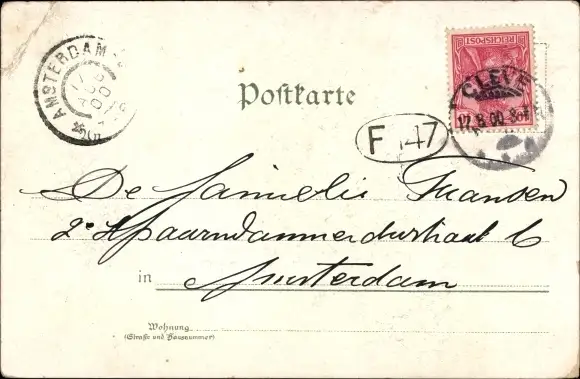 AMSTERDAM
REICHSPOST
CLEVE
17.8.00
Postkarte
F 147
De Familie Fransen
2e Spaarndammerdwstraat 6
in Amsterdam
Wohnung
(Straße und Hausnummer)